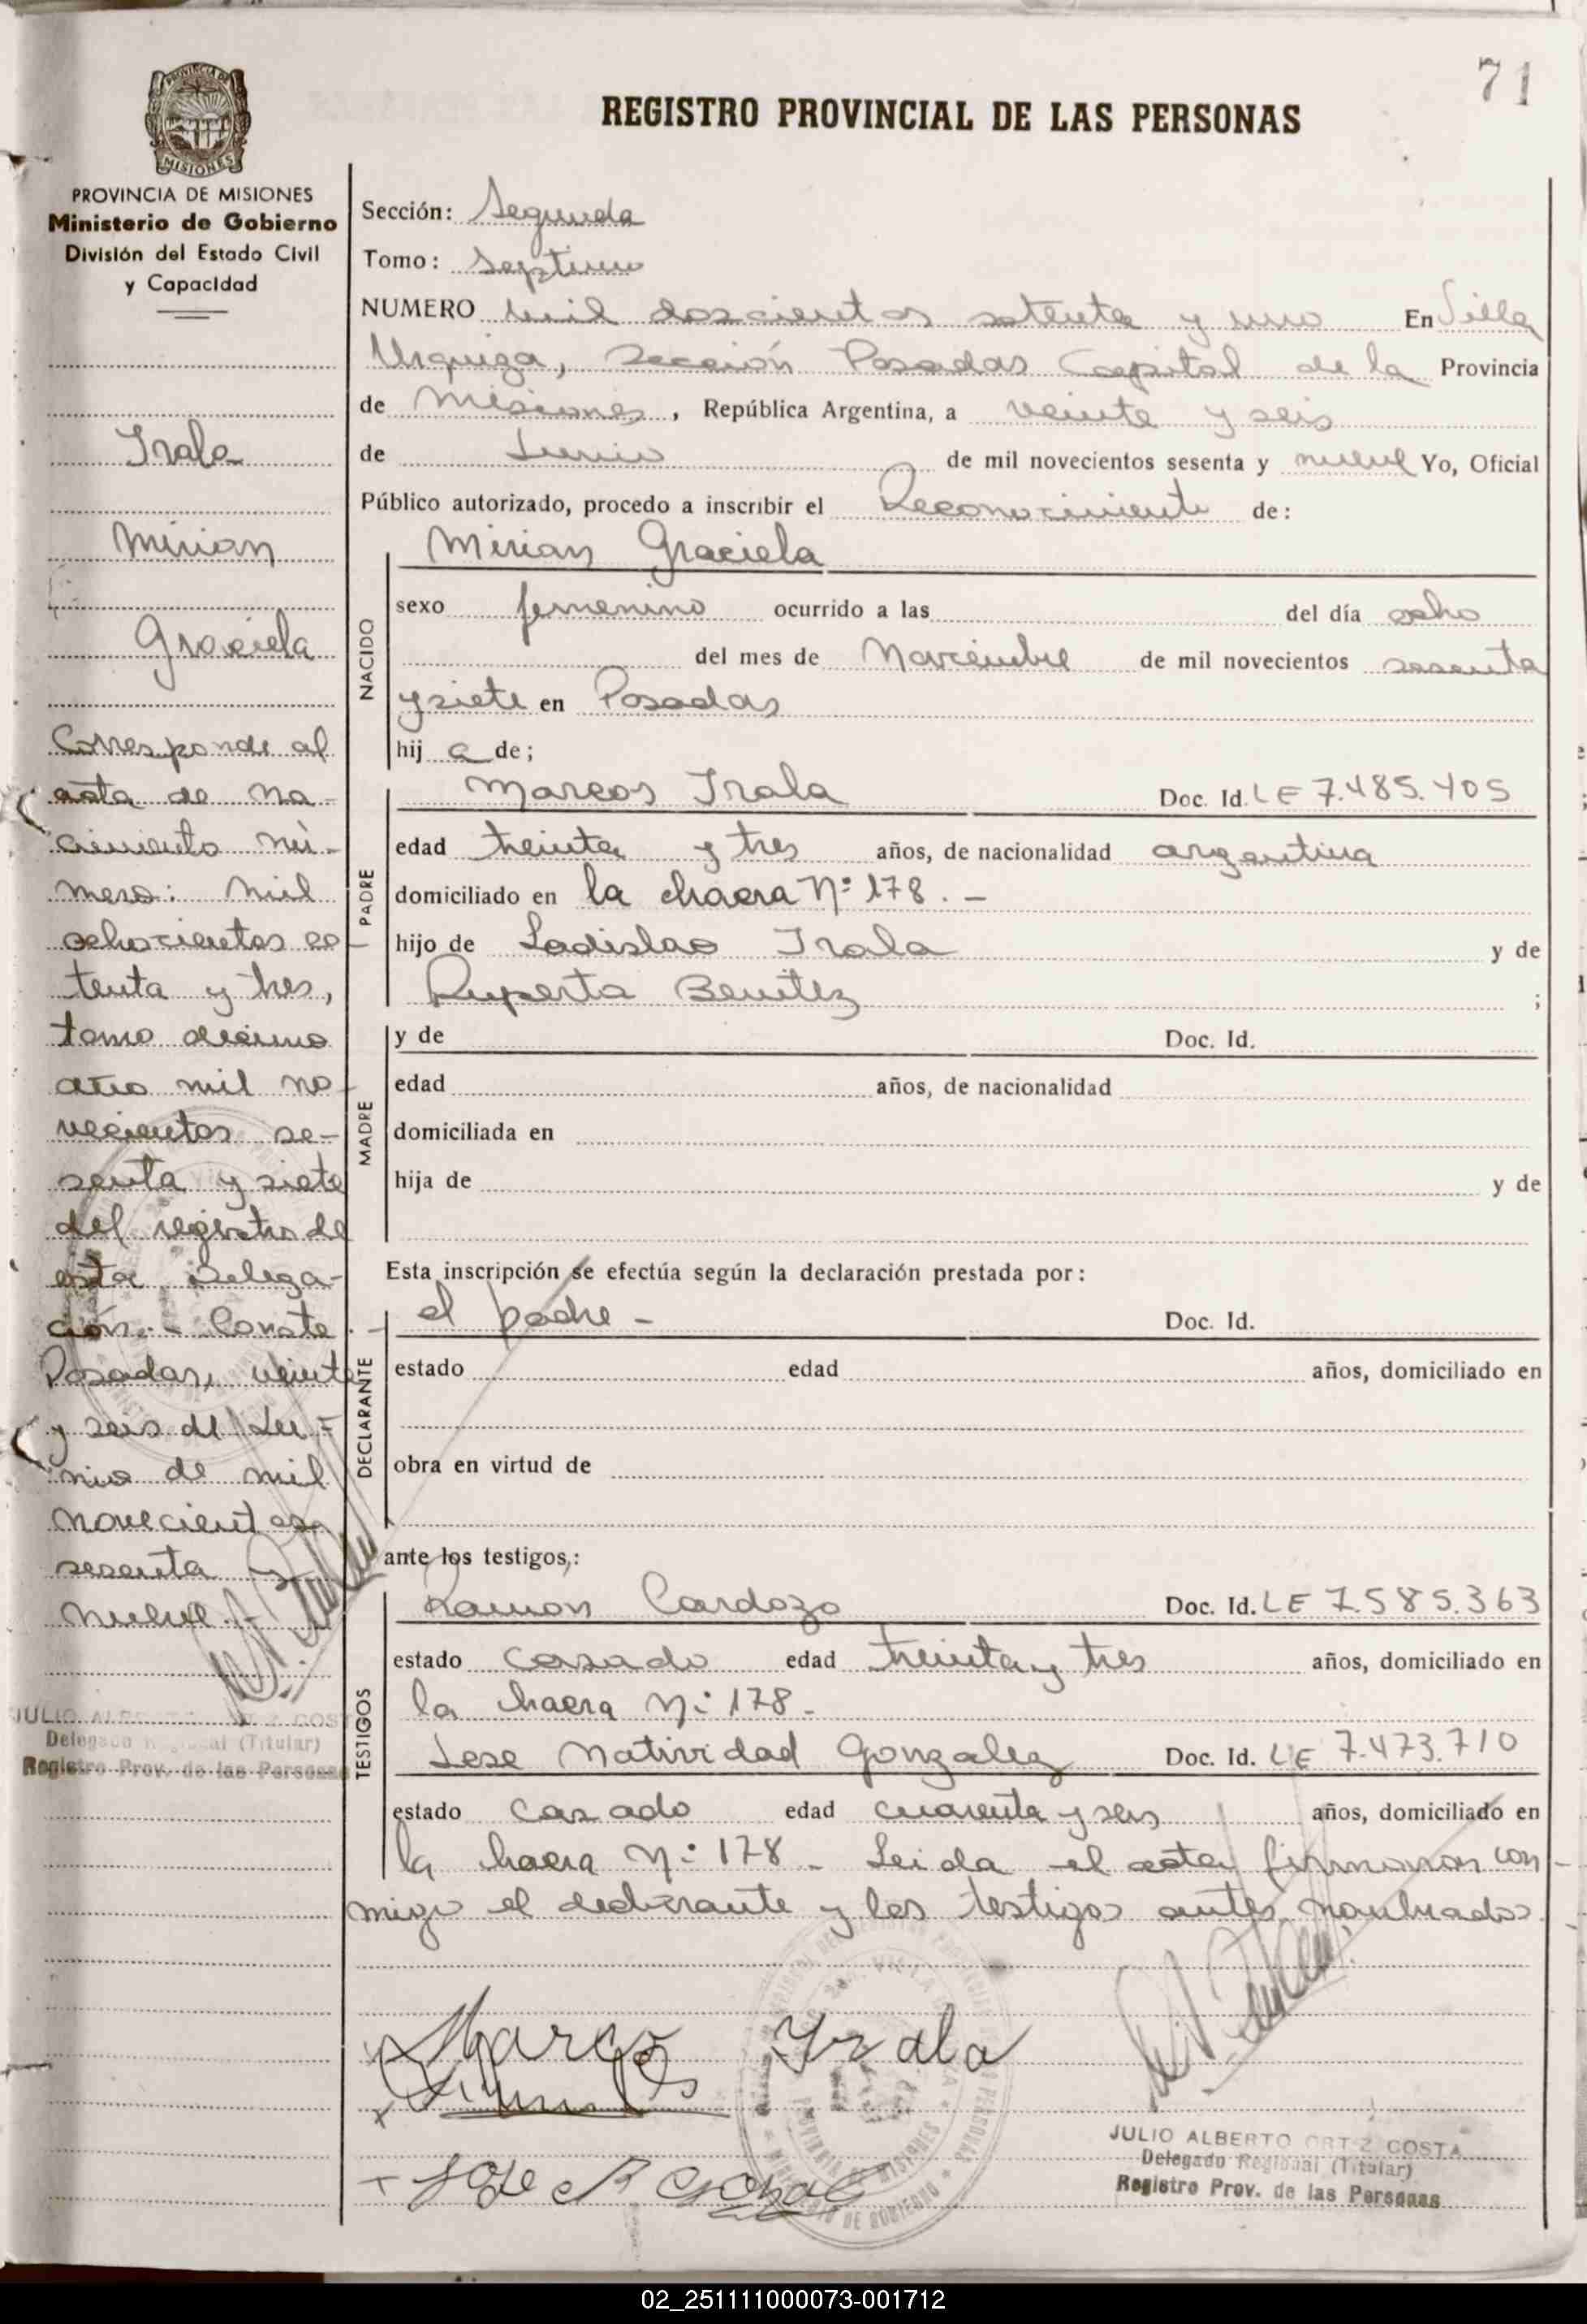 71
REGISTRO PROVINCIAL DE LAS PERSONAS
PROVINCIA DE MISIONES
MISIONES
PROVINCIA DE MISIONES
Ministerio de Gobierno
División del Estado Civil
y Capacidad
Irala
Mirian
Graciela
Corresponde al
acta de na-
cimiento nú-
mero: mil
ochocientos se
tenta y tres,
tomo décimo
año mil no-
vecientos se-
senta y siete
del registro de
esta Delega-
ción.- Conste.-
Posadas, veinte
y seis de Ju-
nio de mil
novecientos
sesenta y
nueve.-
JULIO ALBERTO ORTIZ COSTA
Delegado Regional (Titular)
Registro Prov. de las Personas
Sección: Segunda
Tomo: Septimo
NUMERO mil doscientos setenta y uno En Villa
Urquiza, Sección Posadas Capital de la Provincia
de Misiones, República Argentina, a veinte y seis
de Junio de mil novecientos sesenta y nueve Yo, Oficial
Público autorizado, procedo a inscribir el Reconocimiento de:
NACIDO
Mirian Graciela
sexo femenino ocurrido a las del día ocho
del mes de Noviembre de mil novecientos sesenta
y siete en Posadas
hij a de;
PADRE
Marcos Irala Doc. Id. LE 7.485.405
edad treinta y tres años, de nacionalidad argentina
domiciliado en la chacra Nº 178.-
hijo de Ladislao Irala y de
Ruperta Benitez ;
MADRE
y de Doc. Id.
edad años, de nacionalidad
domiciliada en
hija de y de
Esta inscripción se efectúa según la declaración prestada por:
DECLARANTE
el padre - Doc. Id.
estado edad años, domiciliado en
obra en virtud de
ante los testigos,:
TESTIGOS
Ramon Cardozo Doc. Id. LE 7.585.363
estado casado edad treinta y tres años, domiciliado en
la chacra Nº 178-
Jose Natividad Gonzalez Doc. Id. LE 7.473.710
estado casado edad cuarenta y seis años, domiciliado en
la chacra Nº 178 - Leida el acta, firmaron con-
migo el declarante y los testigos antes nombrados.
Marcos Irala
Jose N Gonzal
JULIO ALBERTO ORTIZ COSTA
Delegado Regional (Titular)
Registro Prov. de las Personas
02_251111000073-001712